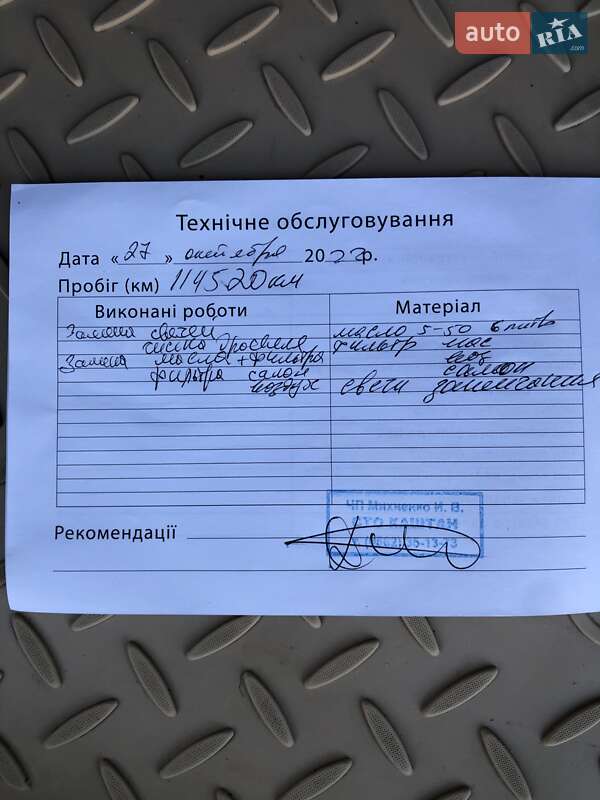 auto RIA.com
Технічне обслуговування
Дата «27» октября 20 р.
Пробіг (км) 114520 км
Виконані роботи Матеріал
Замена свечей масло 5-50 6 литр
чистка дросселя фильтр мас
Замена масла + фильтра воз
фильтра салон салон
воздух свечи зажигания
ЧП Михненко И. В.
СТО КАШТАН
35-13-13
Рекомендації